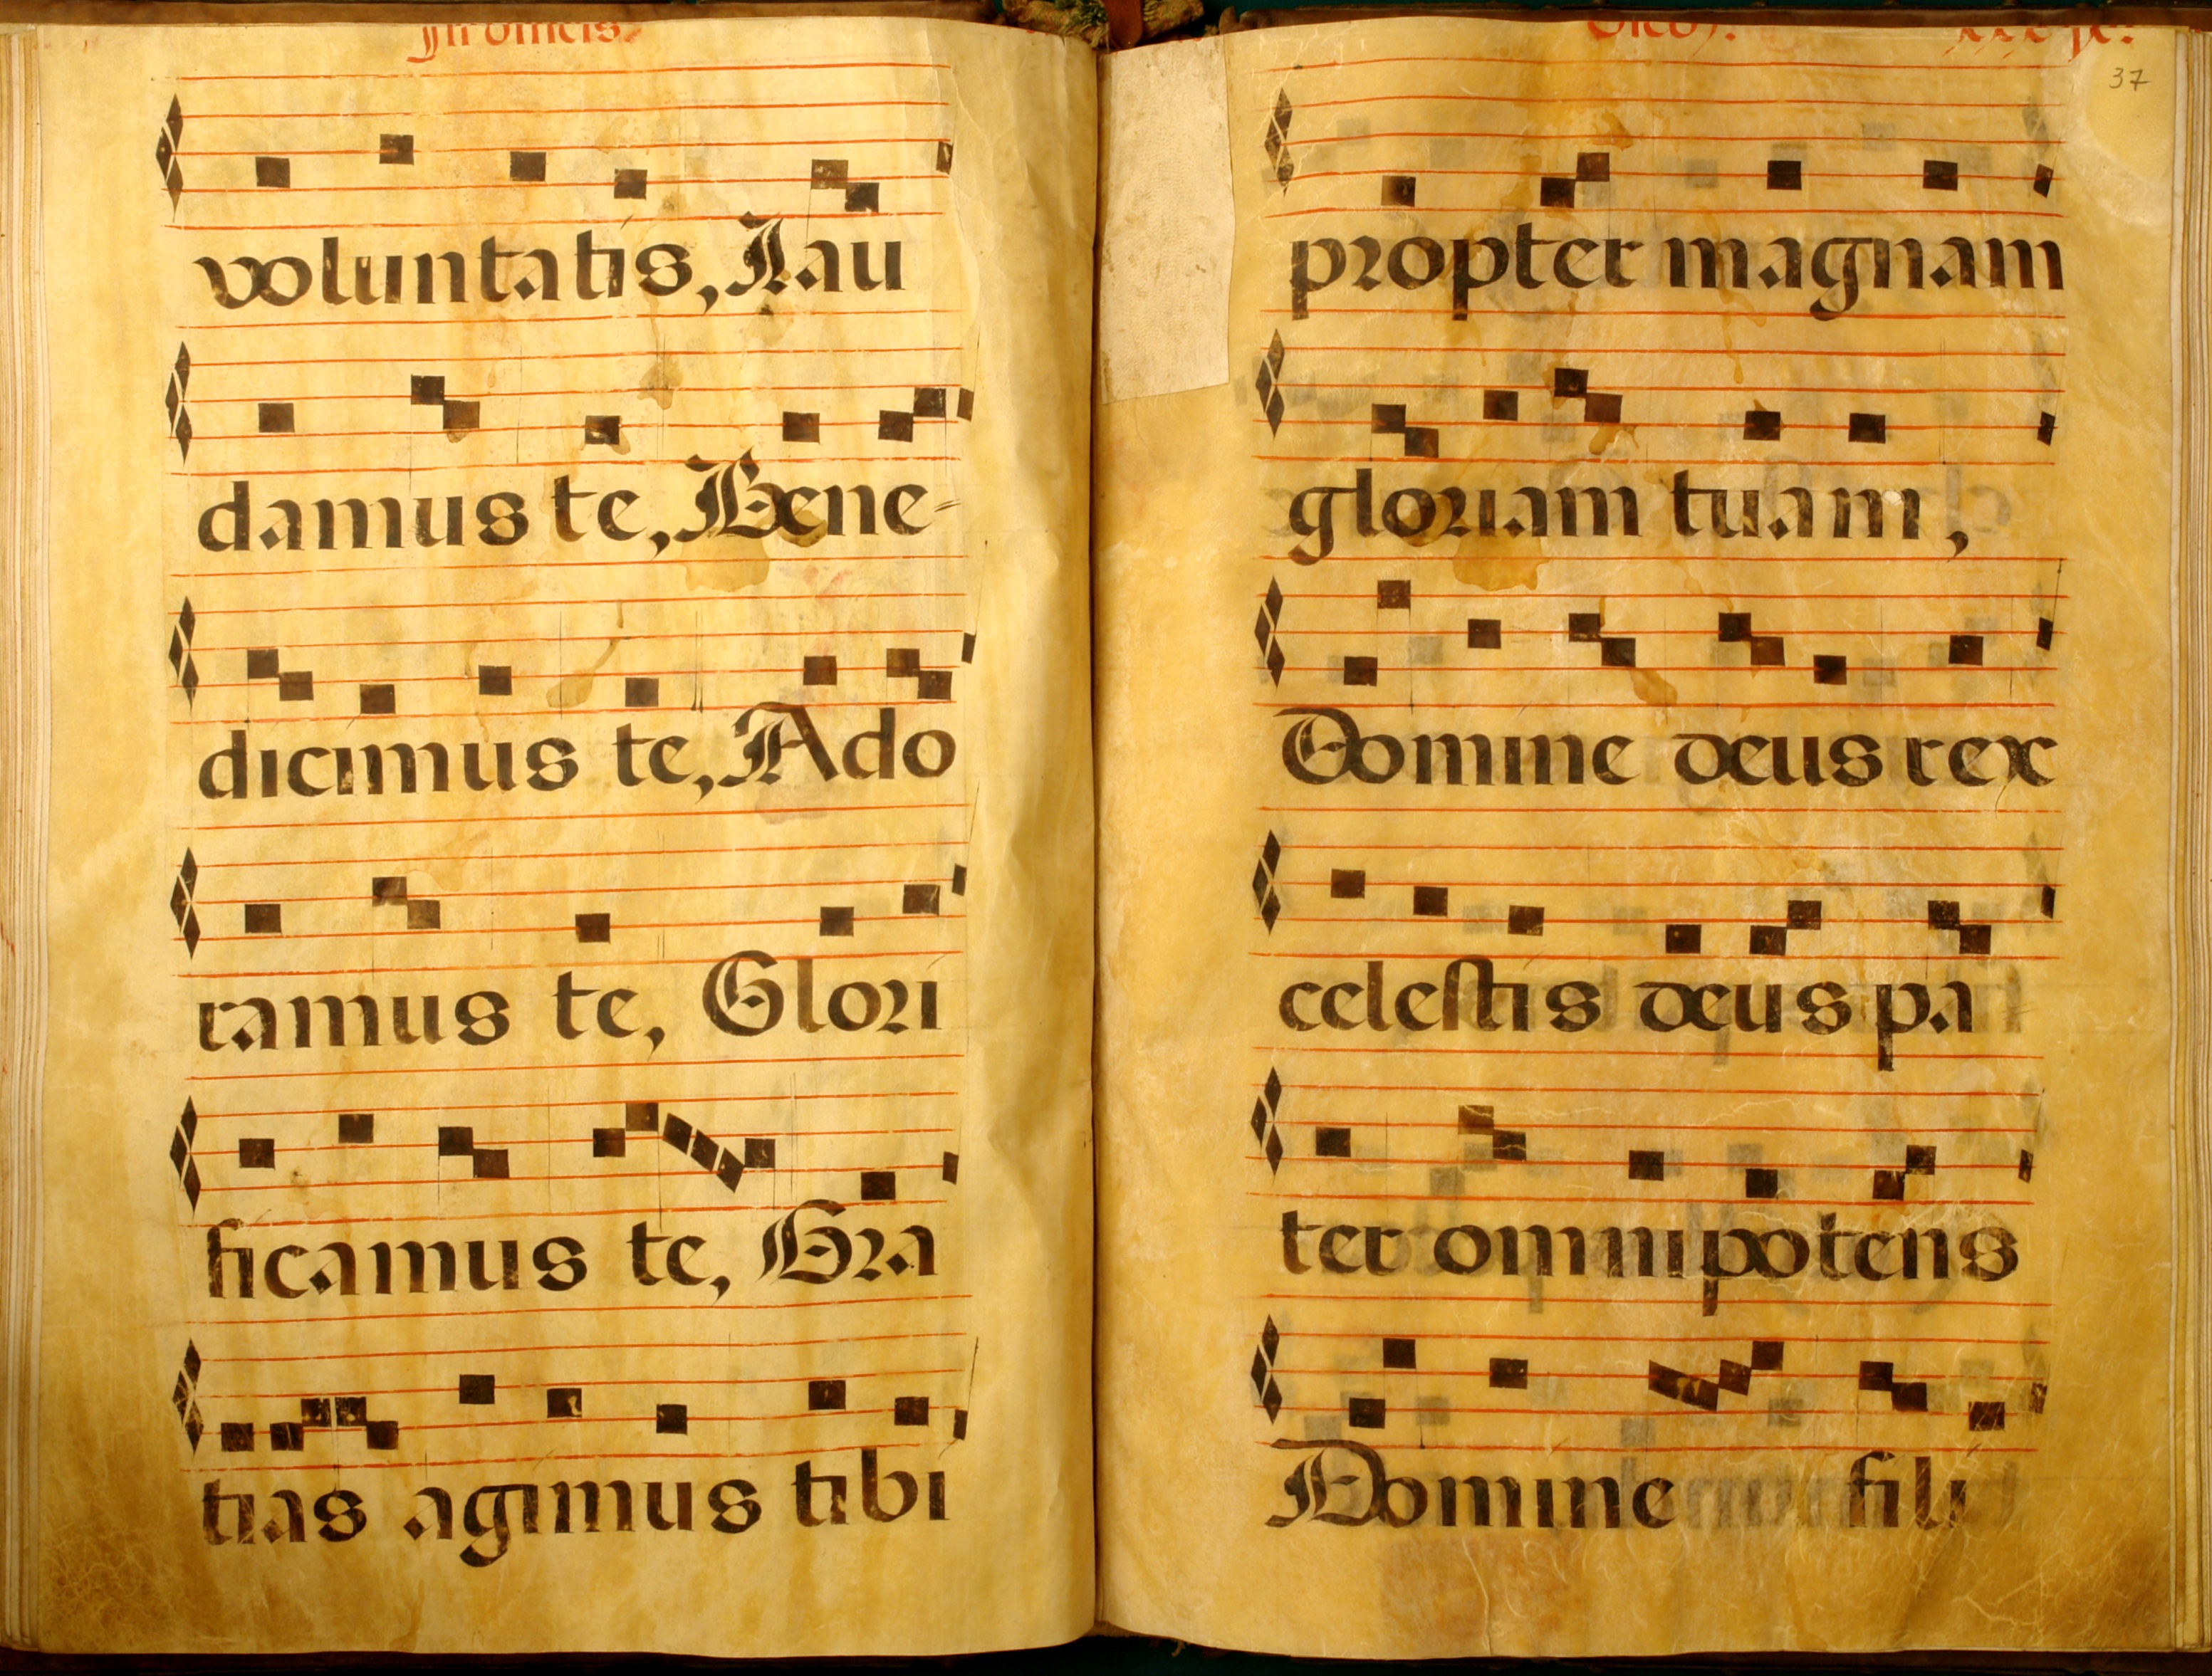 voluntatis, Lau
damus te, Bene-
dicimus te, Ado
ramus te, Glori
ficamus te, Gra
tias agimus tibi
37
propter magnam
gloriam tuam,
Domine deus rex
celestis deus pa
ter omnipotens
Domine fili